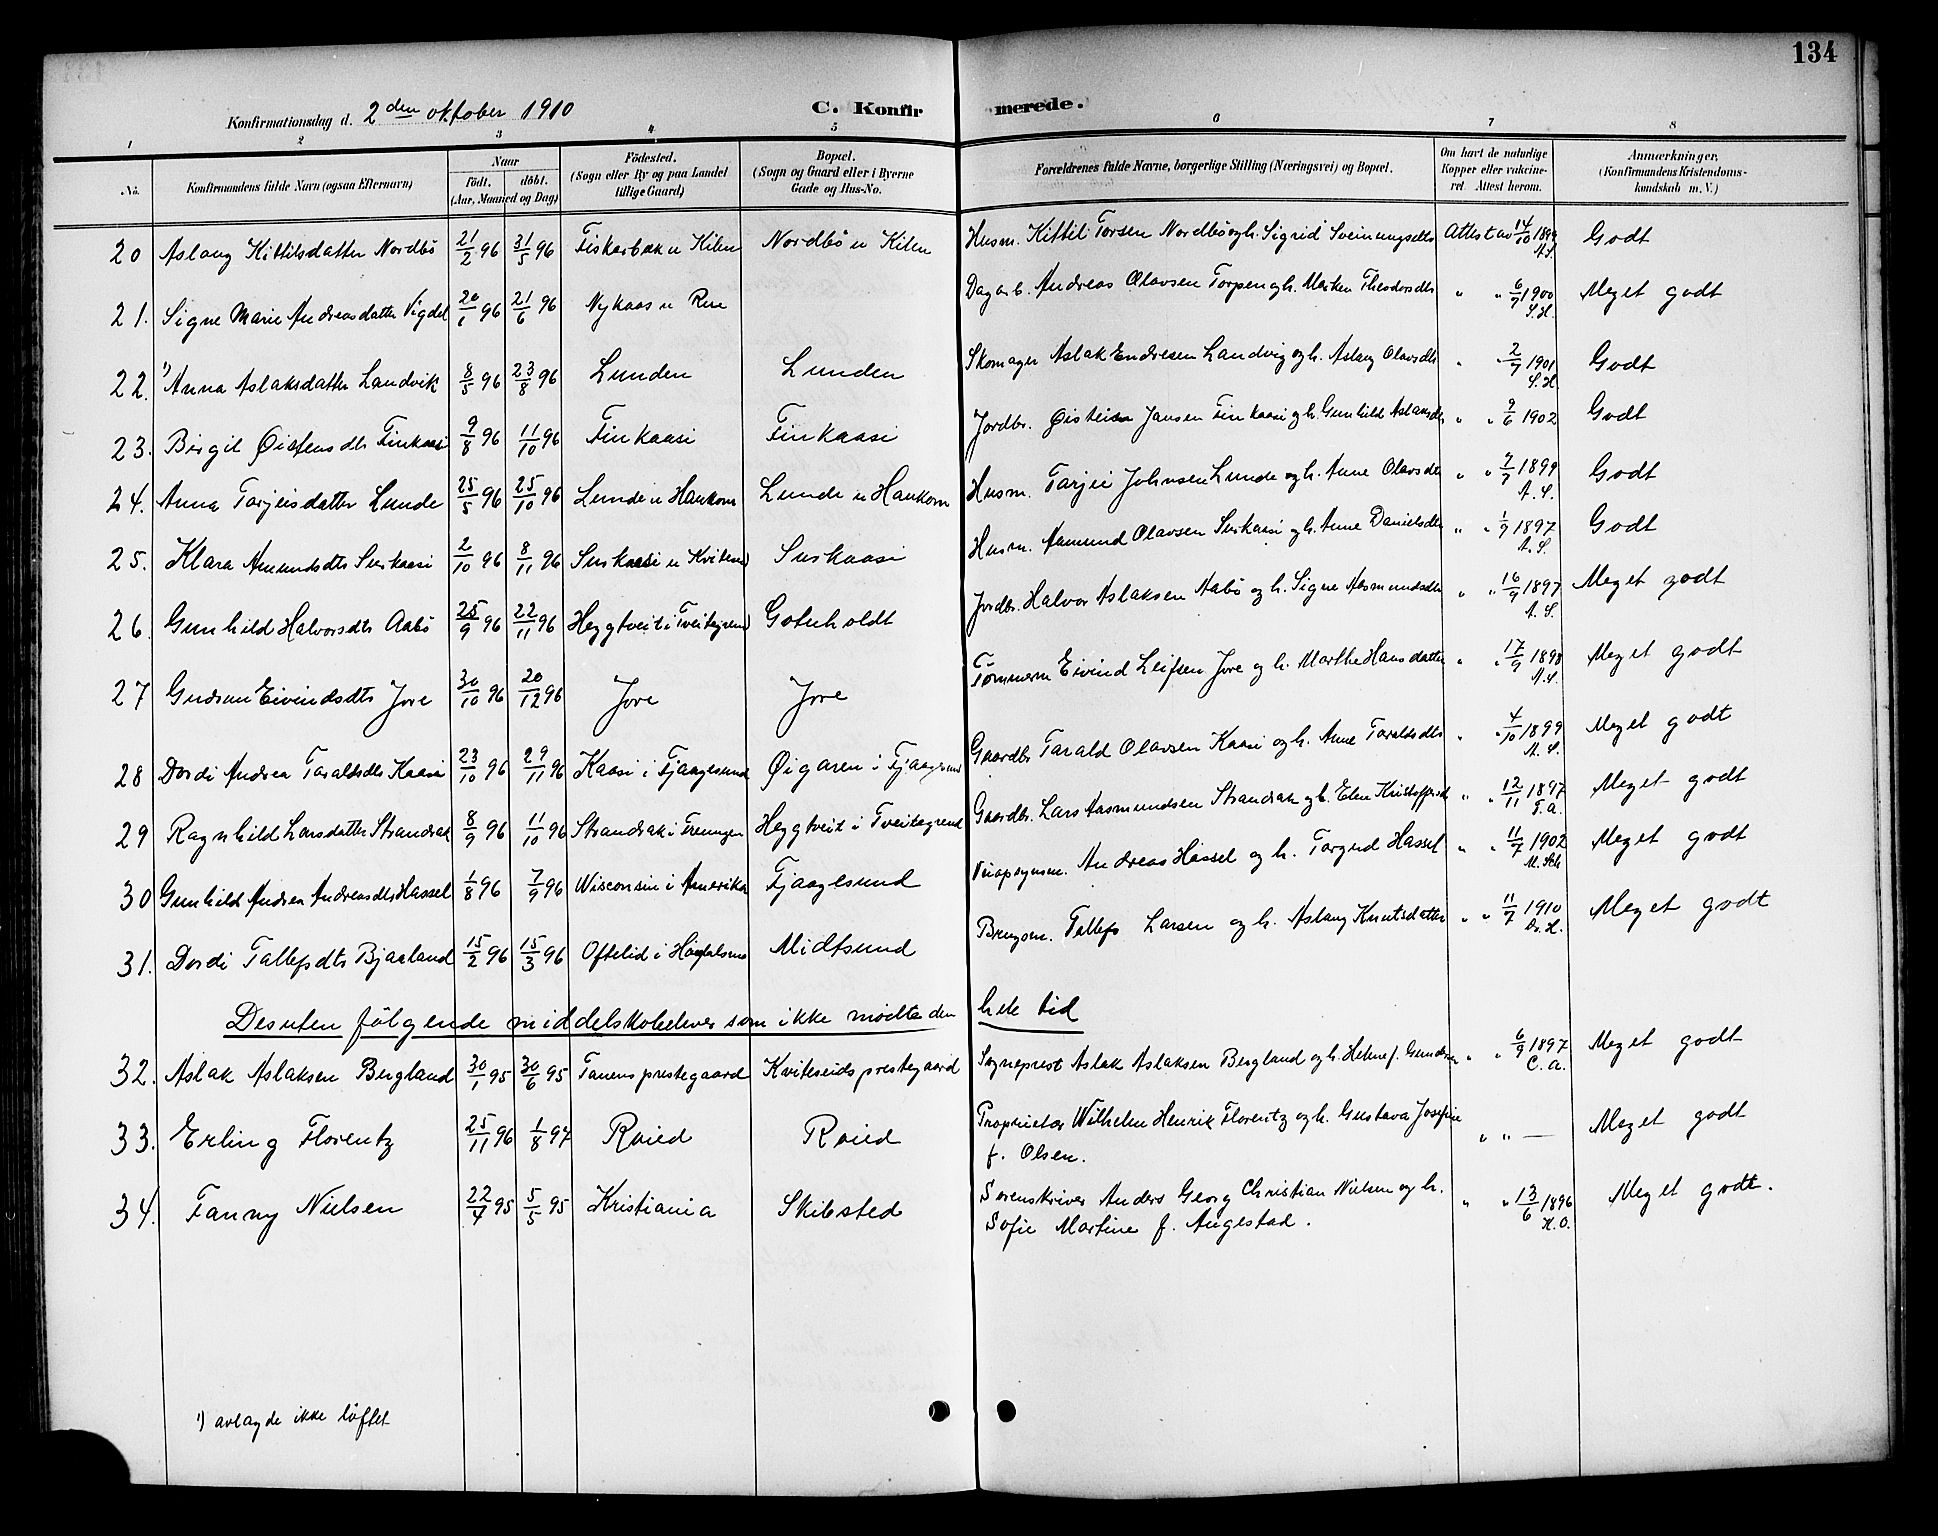 134
Konfirmationsdag d. 2den oktober 1910 C. Konfirmerede.
1 2 3 4 5 6 7 8
No. Konfirmandens fulde Navn (ogsaa Efternavn) Naar Födt. döbt. (Aar, Maaned og Dag) Födested. (Sogn eller By og paa Landet tillige Gaard) Bopæl. (Sogn og Gaard eller i Byerne Gade og Hus-No. Forældrenes fulde Navne, borgerlige Stilling (Næringsvei) og Bopæl. Om havt de naturlige Kopper eller vakcineret. Attest herom. Anmærkninger, (Konfirmandens Kristendomskundskab m. V.)
20 Aslaug Kittilsdatter Nordbö 21/2 96 31/5 96 Fiskarbæk u Kilen Nordbö u Kilen Husm. Kittil Torsen Nordbö og h. Sigrid Sveinungsdtr Attest av 14/10 1899 A.S. Godt
21. Signe Marie Andreasdatter Vigdal 20/1 96 21/6 96 Nykaas u Rue Dagarb. Andreas Olavsen Torpen og h. Marken Theodorsdtr " " 6/7 1900 S.H. Meget godt
22. 1) Anna Aslaksdatter Landvik 8/5 96 23/8 96 Lunden Lunden Skomager Aslak Endresen Landvig og h. Aslaug Olavsdtr " " 2/7 1901 S.H. Godt
23. Birgit Øistensdtr Finkaasi 9/8 96 11/10 96 Finkaasi Finkaasi Jordbr. Øistein Jansen Finkaasi og h. Gunhild Aslaksdtr " " 9/6 1902 Godt
24. Anna Tarjeisdatter Lunde 25/5 96 25/10 96 Lunde u Haukom Lunde u Haukom Husm. Tarjei Johnsen Lunde og h. Anne Olavsdtr " " 7/7 1899 A.S. Godt
25. Klara Amundsdtr Surkaasi 2/10 96 8/11 96 Surkaasi u Kvitseid Surkaasi Husm. Aamund Olavsen Surkaasi og h. Anne Danielsdtr " " 1/9 1897 A.S. Godt
26. Gunhild Halvorsdtr Aabö 25/9 96 22/11 96 Heggtveit i Tveitegrend Gotuholdt Jordbr. Halvor Aslaksen Aabö og h. Signe Aasmundsdtr " " 16/9 1897 A.S. Meget godt
27 Gudrun Eivindsdtr Jore 30/10 96 20/12 96 Jore Jore Tömmerm Eivind Leifsen Jore og h. Marthe Hansdatter " " 17/9 1898 A.S. Meget godt
28 Dordi Andrea Taraldsdtr Kaasi 23/10 96 29/11 96 Kaasi i Fjaagesund Øigaren i Fjaagesund Gaardbr Tarald Olavsen Kaasi og h. Anne Taraldsdtr " " 4/10 1899 A.S. Meget godt
29 Ragnhild Larsdatter Strandrak 8/9 96 11/10 96 Strandrak i Treungen Heggtveit i Tveitegrend Gaardbr. Lars Aasmundsen Strandrak og h. Elen Kristoffersd " " 12/11 1897 T.A. Meget godt
30 Gunhild Andrea Andreasdtr Hassel 1/8 96 7/9 96 Wisconsin i Amerika Fjaagesund Veiopsynsm. Andreas Hassel og h. Torgud Hassel " " 11/7 1902 M. Sch Meget godt
31. Dordi Tallefsdtr Bjaaland 15/2 96 15/3 96 Oftelid i Höydalsmo Midtsund Brugsm. Tallefs Larsen og h. Aslaug Knutsdatter " " 11/7 1910 Dr. H. Meget godt
Desuten fölgende middelskoleelever som ikke mödte den hele tid
32. Aslak Aslaksen Bergland 30/1 95 30/6 95 Tanens prestegaard Kviteseids prestegaard Sogneprest Aslak Aslaksen Bergland og h. Helene f. Gundersen " " 6/9 1897 C.A. Meget godt
33. Erling Florentz 25/11 96 1/8 97 Roied Roied Proprietær Wilhelm Henrik Florentz og h. Gustava Josefine f. Olsen. " " — Meget godt
34. Fanny Nielsen 22/4 95 5/5 95 Kristiania Skibsted Sorenskriver Anders Georg Christian Nielsen og h. Sofie Martine f. Augestad. " " 13/6 1896 H.O. Meget godt.
1) avlagde ikke löftet